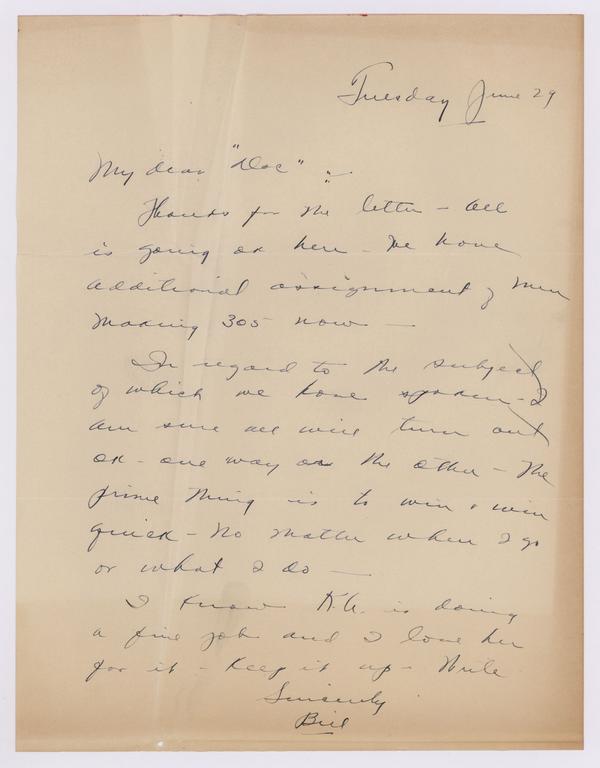 Tuesday June 29
My dear "Doc" :-
Thanks for the letter - all
is going ok here - We have
additional assignment of men
making 305 now -
In regard to the subject
of which we have spoken - I
am sure all will turn out
ok - one way or the other - The
prime thing is to win & win
quick - No matter when I go
or what I do -
I know K.A. is doing
a fine job and I love her
for it - Keep it up - Write
Sincerely
Bill